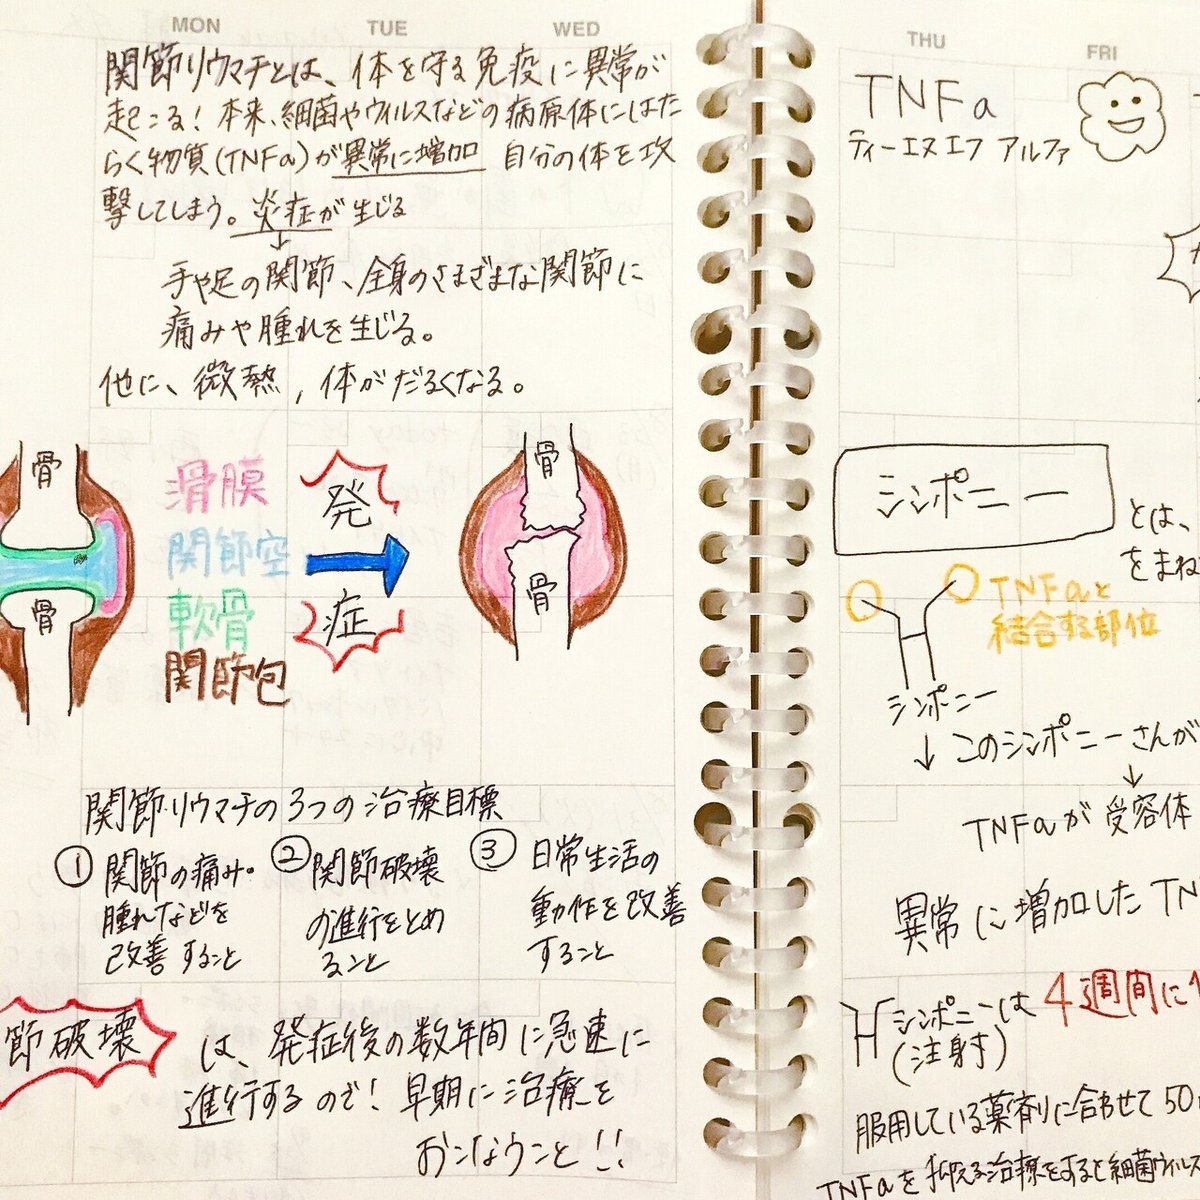 MON
TUE
WED
関節リウマチとは、体を守る免疫に異常が
起こる！本来、細菌やウィルスなどの病原体にはた
らく物質(TNFα)が異常に増加 自分の体を攻
撃してしまう。炎症が生じる
↓
手や足の関節、全身のさまざまな関節に
痛みや腫れを生じる。
他に、微熱，体がだるくなる。
骨
骨
滑膜
関節空
軟骨
関節包
発
症
骨
骨
関節リウマチの3つの治療目標
① 関節の痛み・
腫れなどを
改善すること
② 関節破壊
の進行をとめ
ること
③ 日常生活の
動作を改善
すること
節破壊 は、発症後の数年間に急速に
進行するので！早期に治療を
おこなうこと!!
THU
FRI
TNFα
ティーエヌエフ アルファ
シンポニー
とは、
をまね
TNFαと
結合する部位
シンポニー
↓ このシンポニーさんが
↓
TNFαが 受容体
異常に増加したTN
シンポニーは 4週間に1
(注射)
服用している薬剤に合わせて50
TNFαを抑える治療をすると細菌ウィルス